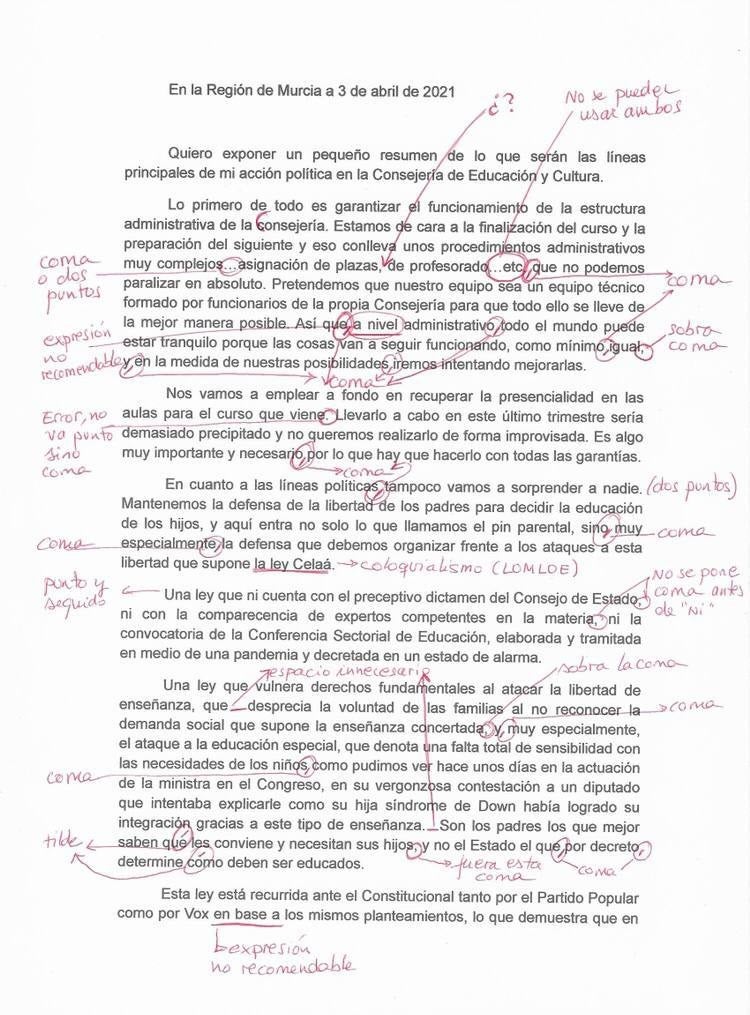 En la Región de Murcia a 3 de abril de 2021
¿?
No se pueden
usar ambos
Quiero exponer un pequeño resumen de lo que serán las líneas
principales de mi acción política en la Consejería de Educación y Cultura.
Lo primero de todo es garantizar el funcionamiento de la estructura
administrativa de la Consejería. Estamos de cara a la finalización del curso y la
preparación del siguiente y eso conlleva unos procedimientos administrativos
muy complejos...asignación de plazas, de profesorado...etc, que no podemos
paralizar en absoluto. Pretendemos que nuestro equipo sea un equipo técnico
formado por funcionarios de la propia Consejería para que todo ello se lleve de
la mejor manera posible. Así que, a nivel administrativo, todo el mundo puede
estar tranquilo porque las cosas van a seguir funcionando, como mínimo, igual,
y, en la medida de nuestras posibilidades, iremos intentando mejorarlas.
coma
o dos
puntos
coma
expresión
no
recomendable
sobra
coma
coma
Nos vamos a emplear a fondo en recuperar la presencialidad en las
aulas para el curso que viene. Llevarlo a cabo en este último trimestre sería
demasiado precipitado y no queremos realizarlo de forma improvisada. Es algo
muy importante y necesario, por lo que hay que hacerlo con todas las garantías.
Error, no
va punto
sino
coma
coma
En cuanto a las líneas políticas, tampoco vamos a sorprender a nadie. (dos puntos)
Mantenemos la defensa de la libertad de los padres para decidir la educación
de los hijos, y aquí entra no solo lo que llamamos el pin parental, sino, muy
especialmente, la defensa que debemos organizar frente a los ataques a esta
libertad que supone la ley Celaá. → coloquialismo (LOMLOE)
coma
coma
Una ley que ni cuenta con el preceptivo dictamen del Consejo de Estado,
ni con la comparecencia de expertos competentes en la materia, ni la
convocatoria de la Conferencia Sectorial de Educación, elaborada y tramitada
en medio de una pandemia y decretada en un estado de alarma.
punto y
seguido
No se pone
coma antes
de "Ni"
espacio innecesario
sobra la coma
Una ley que vulnera derechos fundamentales al atacar la libertad de
enseñanza, que desprecia la voluntad de las familias al no reconocer la
demanda social que supone la enseñanza concertada, y, muy especialmente,
el ataque a la educación especial, que denota una falta total de sensibilidad con
las necesidades de los niños, como pudimos ver hace unos días en la actuación
de la ministra en el Congreso, en su vergonzosa contestación a un diputado
que intentaba explicarle como su hija síndrome de Down había logrado su
integración gracias a este tipo de enseñanza. Son los padres los que mejor
saben qué les conviene y necesitan sus hijos, y no el Estado el que, por decreto,
determine cómo deben ser educados.
coma
coma
tilde
fuera esta
coma
coma
Esta ley está recurrida ante el Constitucional tanto por el Partido Popular
como por Vox en base a los mismos planteamientos, lo que demuestra que en
expresión
no recomendable